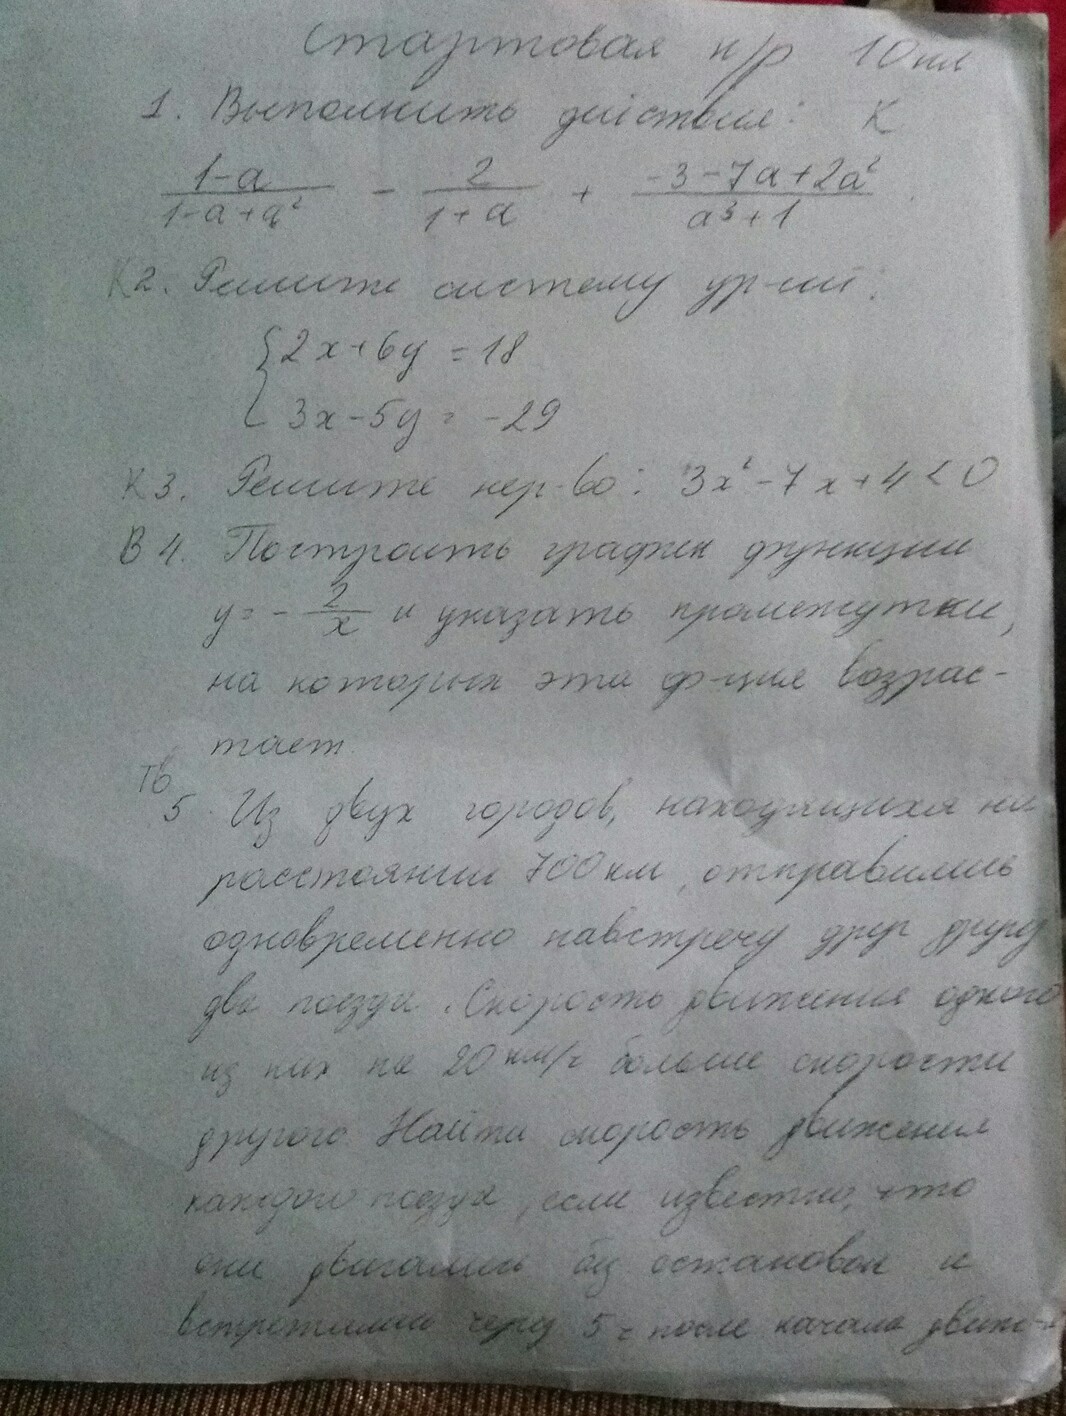 Стартовая к/р 10 кл
1. Выполнить действия: К
(1-a)/(1-a+a²) - 2/(1+a) + (-3-7a+2a²)/(a³+1)
К2. Решите систему ур-ий:
{2x+6y=18
3x-5y=-29
К3. Решите нер-во: 3x²-7x+4<0
В 4. Построить график функции
y=-2/x и указать промежутки,
на которых эта ф-ция возрас-
тает.
Тв
5. Из двух городов, находящихся на
расстоянии 700 км, отправились
одновременно навстречу друг другу
два поезда. Скорость движения одного
из них на 20 км/ч больше скорости
другого. Найти скорость движения
каждого поезда, если известно, что
они двигались без остановок и
встретились через 5 ч после начала движ-я